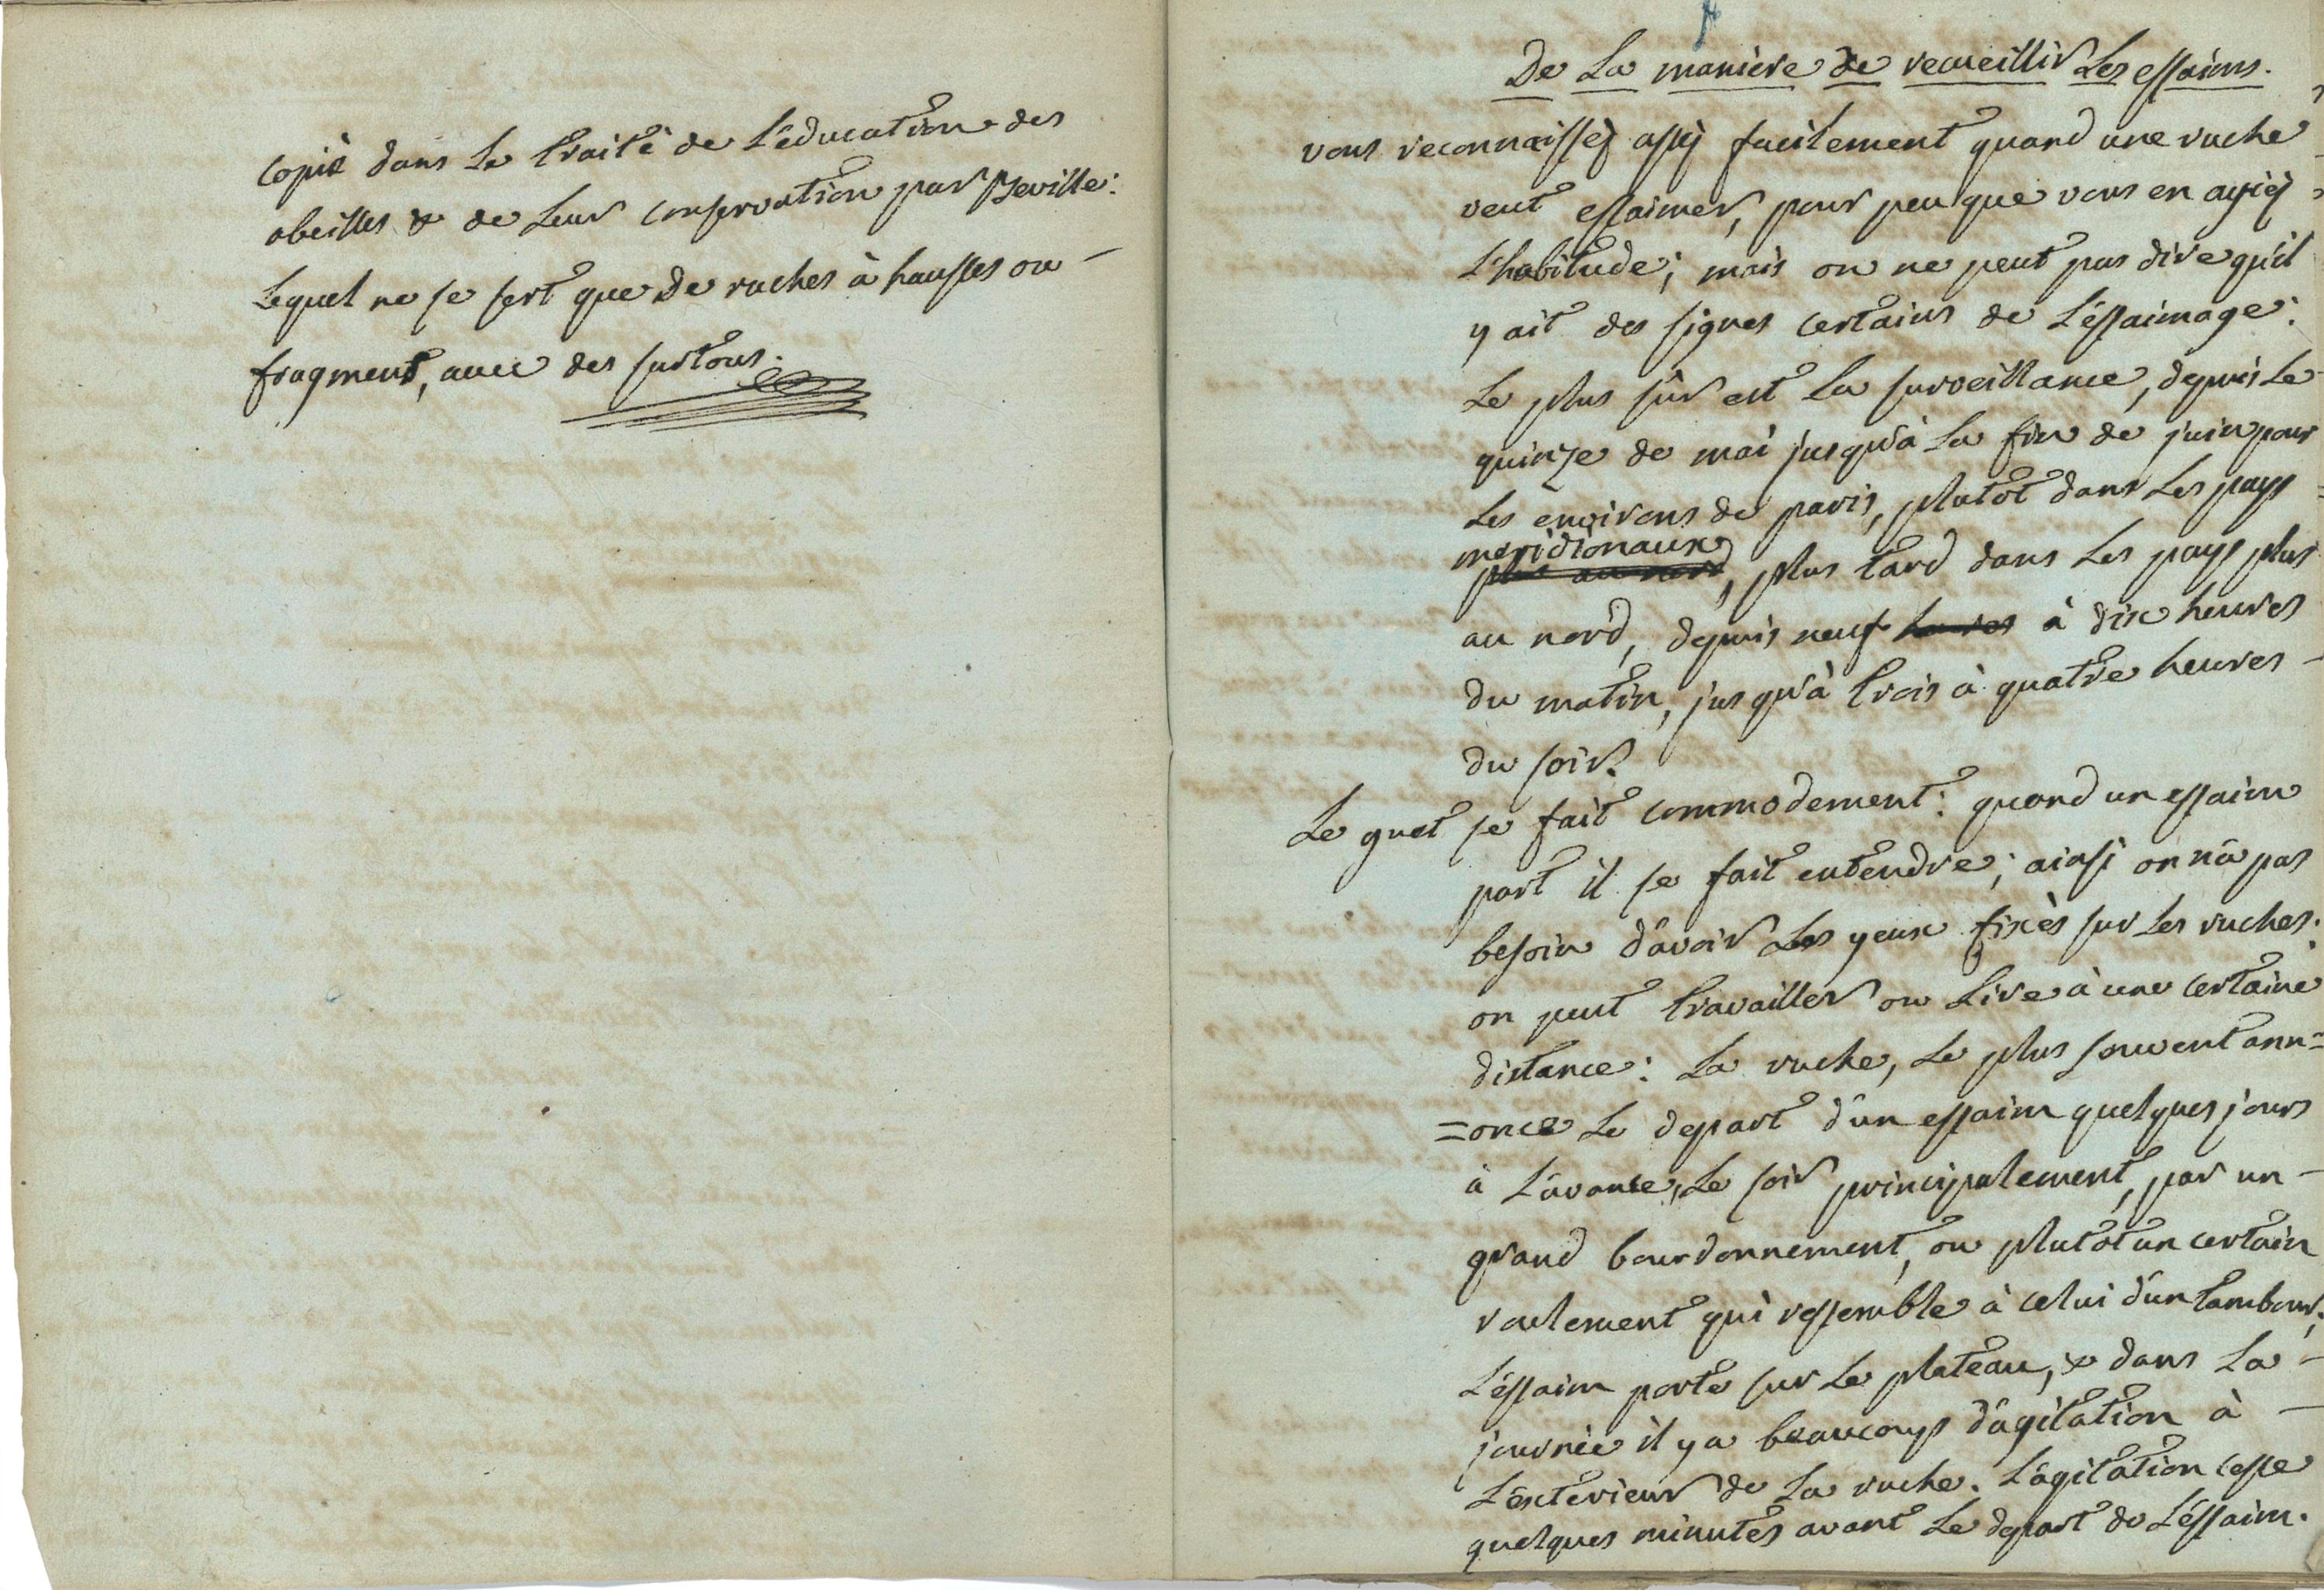 copié dans le traité de l'éducation des
abeilles & de leur conservation par Beville:
lequel ne se sert que de ruches à hausses ou -
fragment, avec des surtous.
De La maniere de recueillir Les essaims.
vous reconnaissez assez facilement quand une ruche
veut essaimer, pour peu que vous en ayiez
l'habitude; mais on ne peut pas dire qu'il
y ait des signes certains de l'éssaimage:
Le plus sûr est La surveillance, depuis Le
quinze de mai jusqu'à La fin de juin pour
Les environs de paris, plutôt dans Les pays
meridionaux
plus au nord, plus tard dans Les pays plus
au nord, depuis neuf heures à dix heures
du matin, jusqu'à trois à quatre heures -
du soir.
Le guet se fait commodement: quand un essaim
part il se fait entendre; ainsi on n'a pas
besoin d'avoir Les yeux fixès sur Les ruches.
on peut travailler ou Lire à une certaine
distance: La ruche, Le plus souvent ann=
=once Le depart d'un essaim quelques jours
à L'avance, Le soir principalement, par un -
grand bourdonnement, ou plutôt un certain
roulement qui ressemble à celui d'un tambour,
L'éssaim porte sur Le plateau, & dans La -
journée il y a beaucoup d'agitation à -
L'éxterieur de La ruche. L'agitation cesse
quelques minutes avant Le depart de L'éssaim.